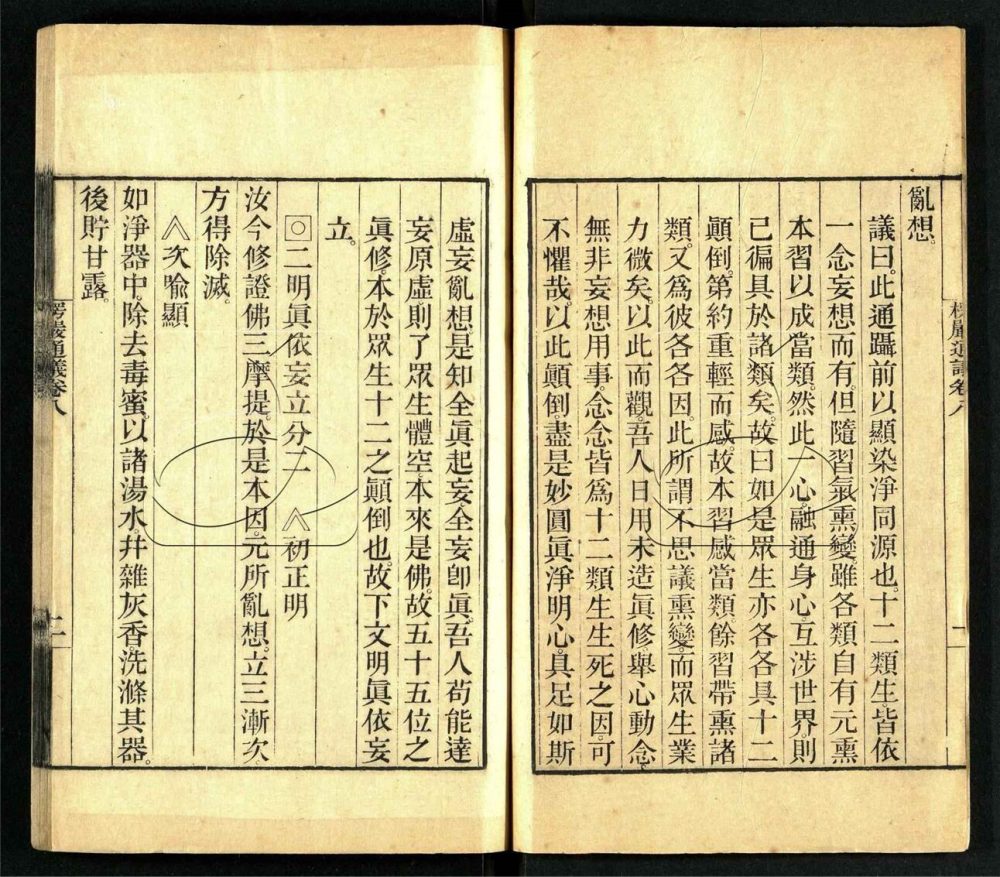 亂想。
議曰。此通躡前以顯染淨同源也。十二類生。皆依
一念妄想而有。但隨習氣熏變。雖各類自有元熏
本習以成當類。然此一心。融通身心。互涉世界。則
已徧具於諸類矣。故曰如是眾生亦各各具十二
顛倒。第約重輕而感。故本習感當類。餘習帶熏諸
類。又爲彼各各因。此所謂不思議熏變。而眾生業
力微矣。以此而觀。吾人日用未造眞修。舉心動念。
無非妄想用事。念念皆爲十二類生生死之因。可
不懼哉。以此顛倒。盡是妙圓眞淨明心。具足如斯
楞嚴通議卷八
一
虛妄亂想。是知全眞起妄。全妄卽眞。吾人苟能達
妄原虛。則了眾生體空。本來是佛。故五十五位之
眞修。本於眾生十二之顛倒也。故下文明眞依妄
立。
〇二明眞依妄立分二 〈初正明
汝今修證佛三摩提。於是本因。元所亂想。立三漸次。
方得除滅。
〈次喻顯
如淨器中。除去毒蜜。以諸湯水。幷雜灰香。洗滌其器。
後貯甘露。
楞嚴通議卷八
二